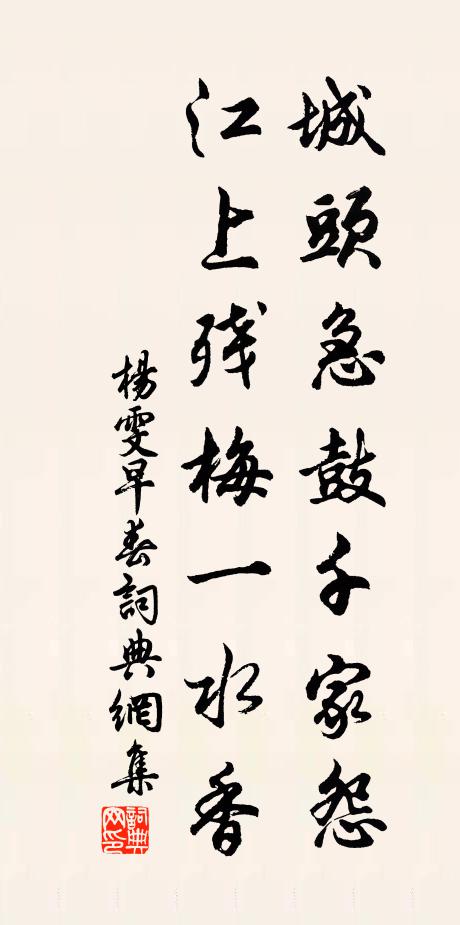 城頭急鼓千家怨
江上残梅一水香
楊雯早春詞典網集
詞典網印